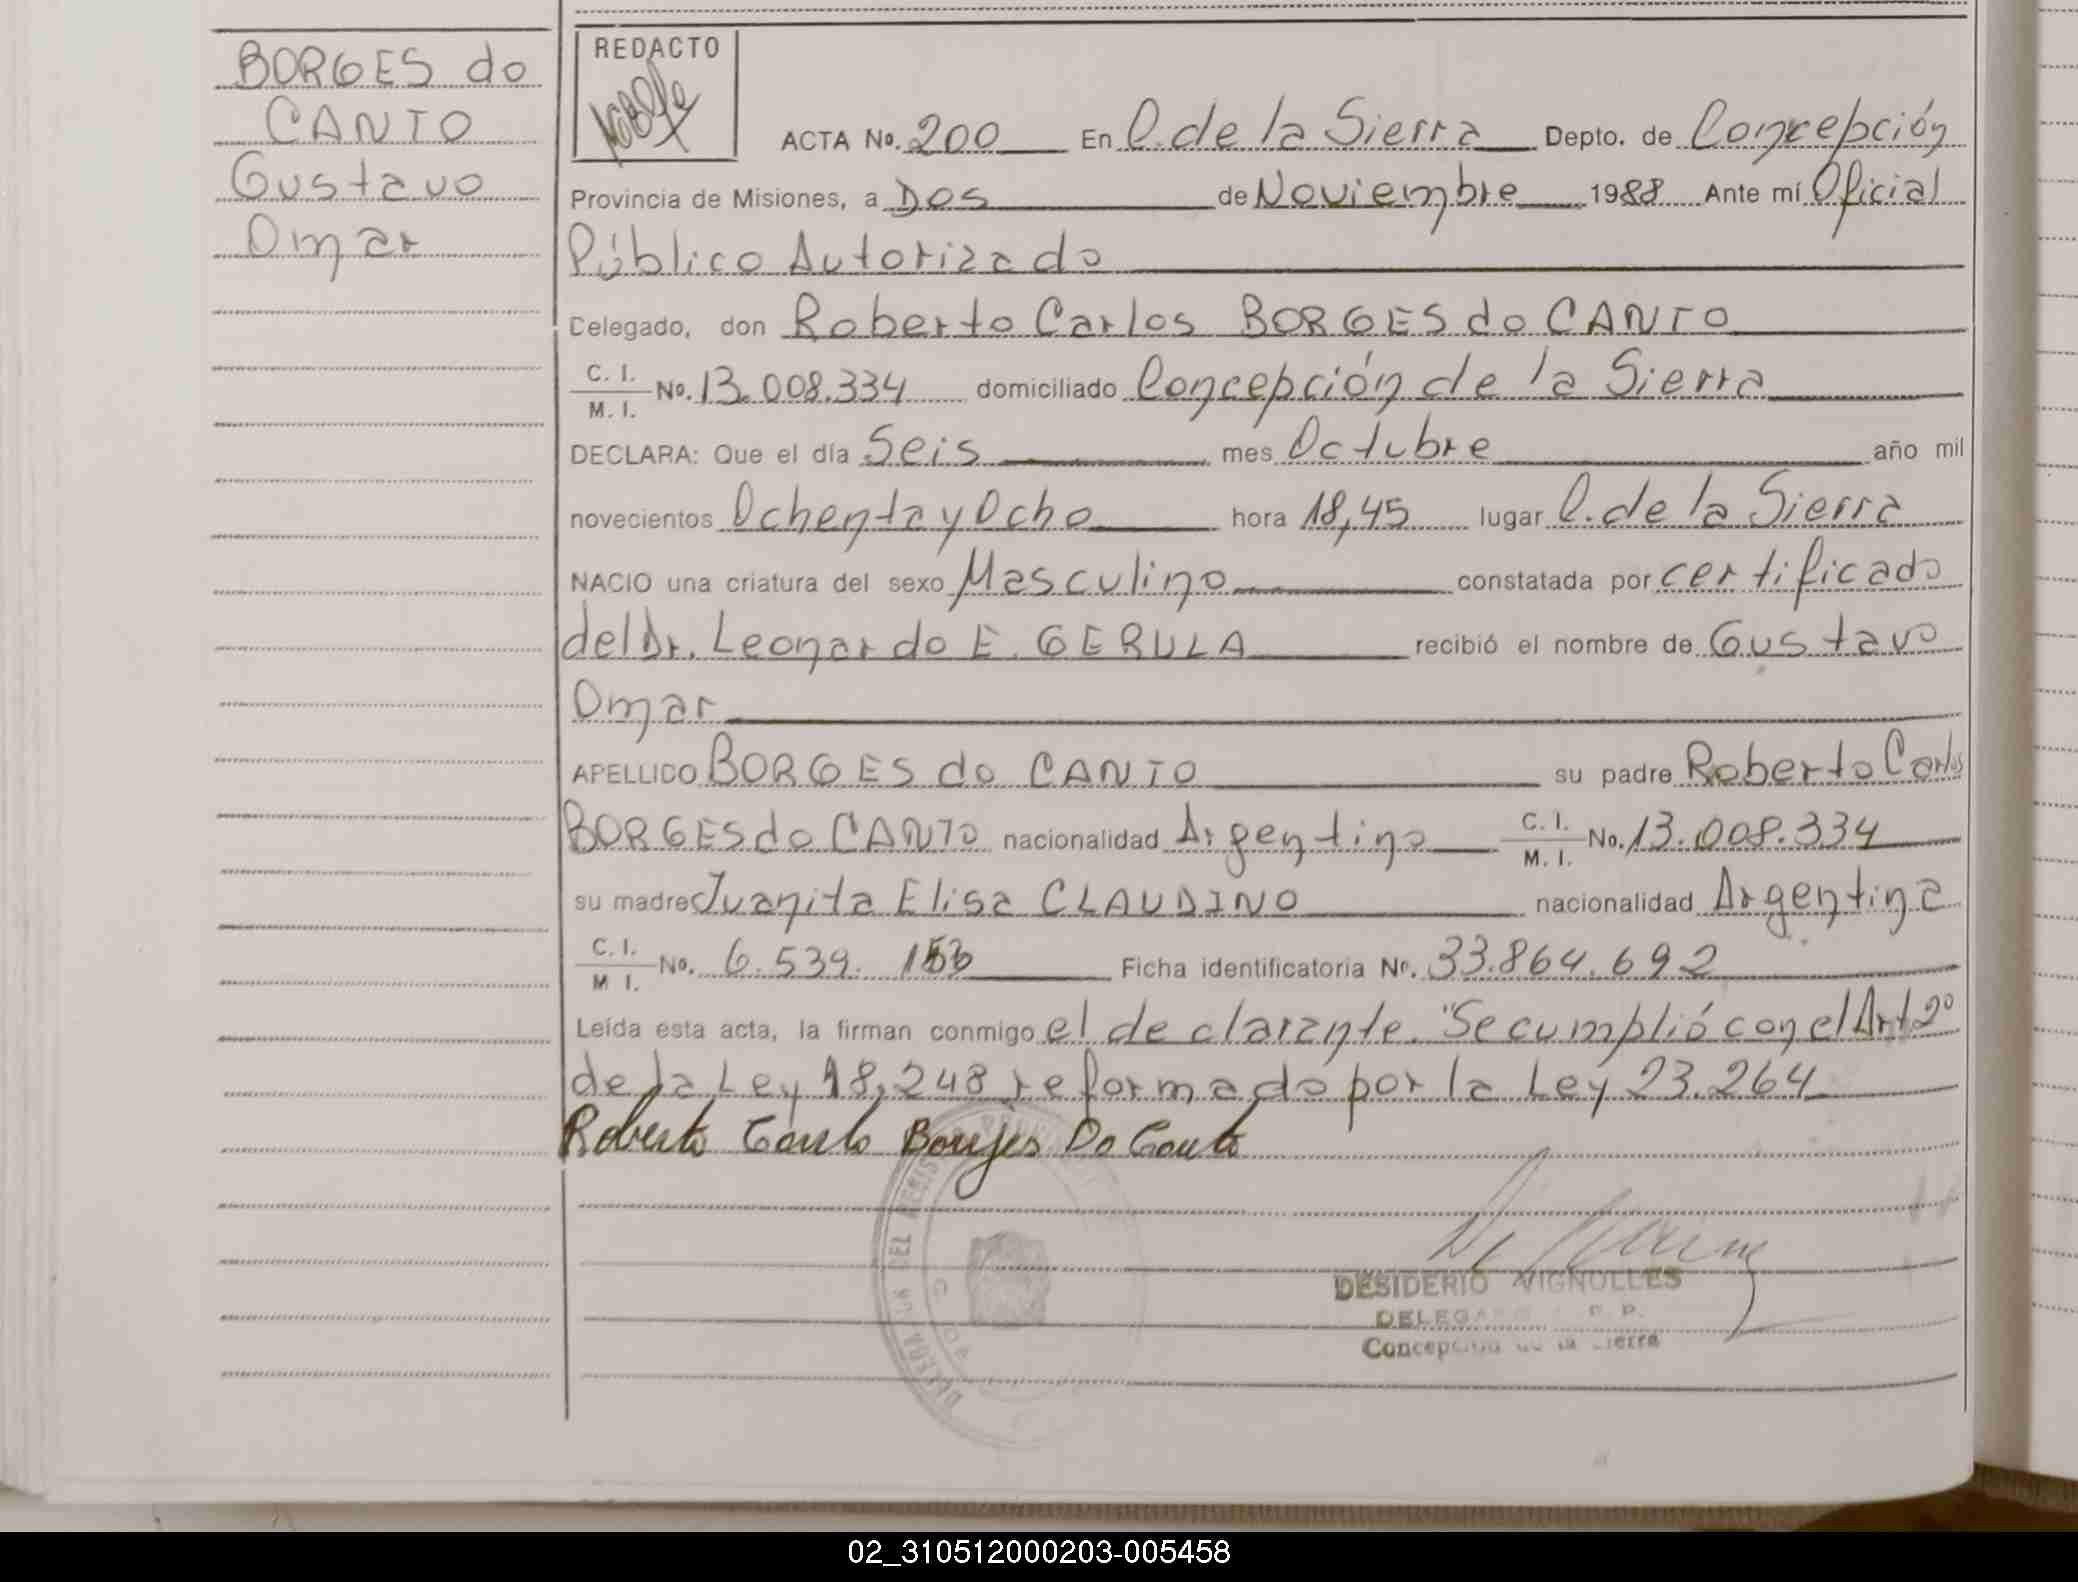 BORGES do
CANTO
Gustavo
Omar
REDACTO
ACTA No. 200 En C. de la Sierra Depto. de Concepción
Provincia de Misiones, a Dos de Noviembre 1988 Ante mí Oficial
Público Autorizado
Celegado, don Roberto Carlos BORGES do CANTO
C. I.
M. I.
No. 13.008.334 domiciliado Concepción de la Sierra
DECLARA: Que el día Seis mes Octubre año mil
novecientos Ochenta y Ocho hora 18,45 lugar C. de la Sierra
NACIO una criatura del sexo Masculino constatada por certificado
del Dr. Leonardo E. GERULA recibió el nombre de Gustavo
Omar
APELLIDO BORGES do CANTO su padre Roberto Carlos
BORGES do CANTO nacionalidad Argentino C. I. M. I. No. 13.008.334
su madre Juanita Elisa CLAUDINO nacionalidad Argentina
C. I.
M I.
No. 6.539. Ficha identificatoria No. 33.864.692
Leída esta acta, la firman conmigo el declarante. "Se cumplió con el Art 2º
de la Ley 18,248 reformado por la Ley 23.264
Roberto Carlo Borjes Do Canto
DESIDERIO VIGNOLLES
Concepción de la Sierra
02_310512000203-005458